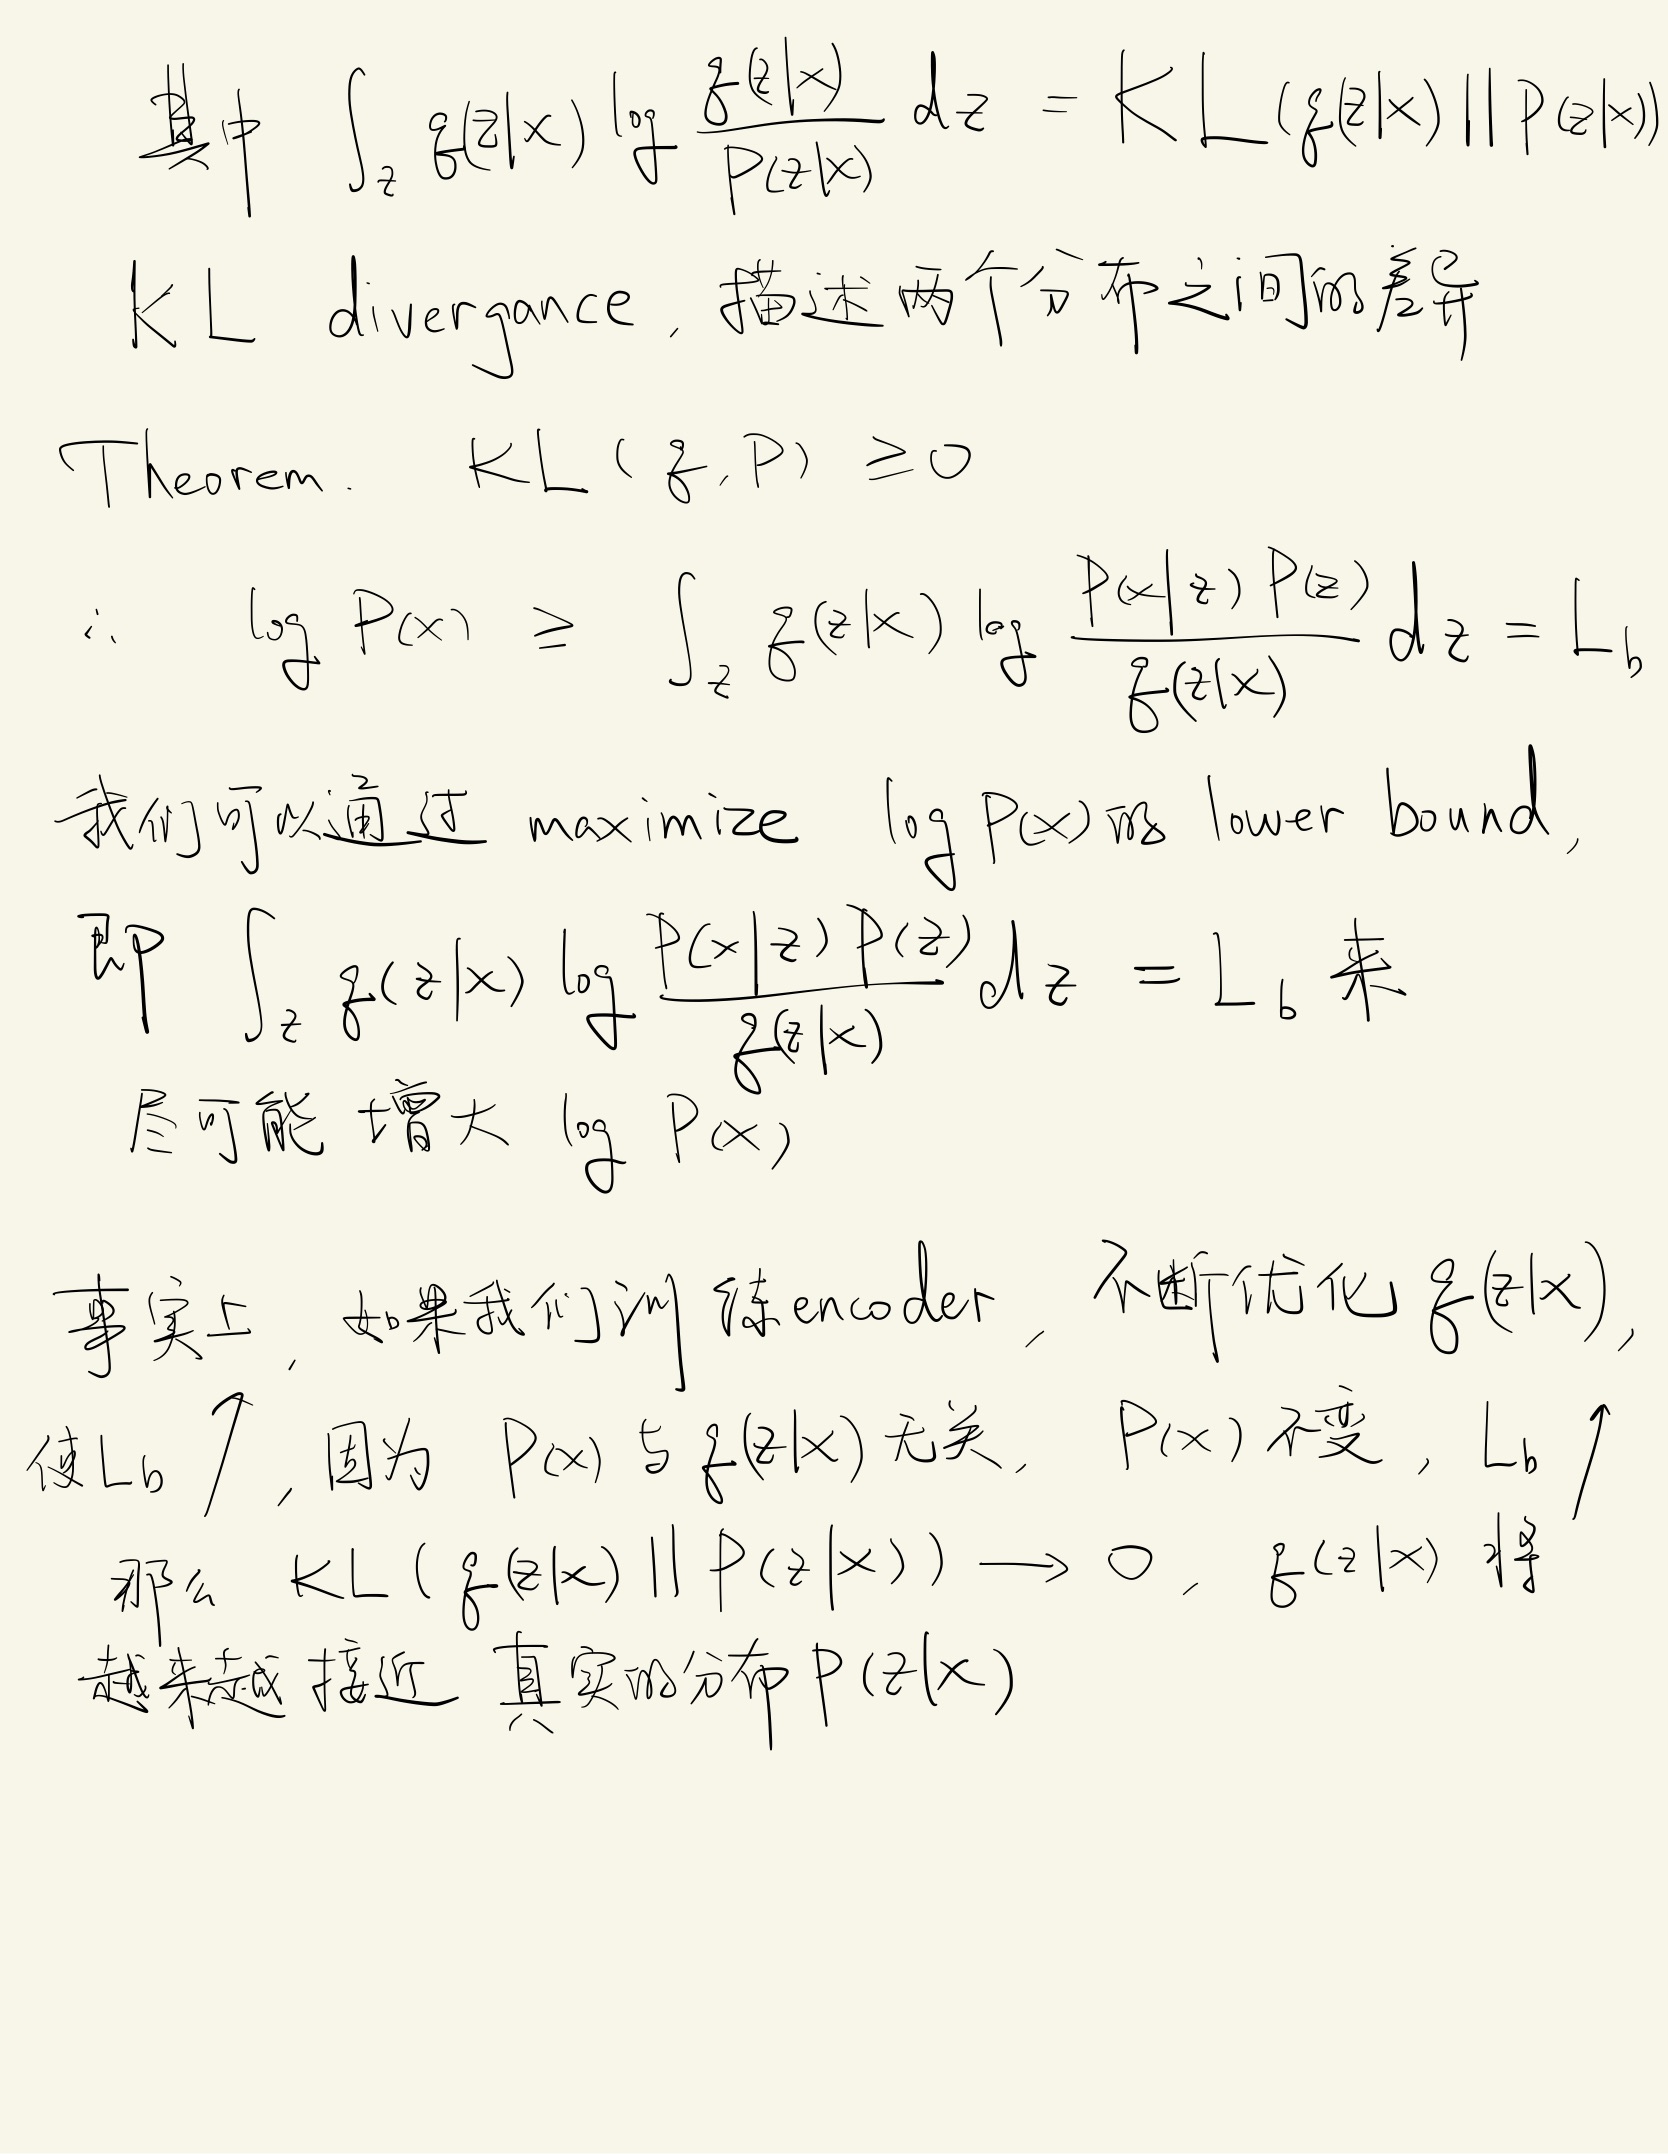 其中 ∫_z q(z|x) log q(z|x)/P(z|x) dz = KL(q(z|x) || P(z|x))
KL divergance, 描述两个分布之间的差异
Theorem. KL(q, P) ≥ 0
∴ log P(x) ≥ ∫_z q(z|x) log P(x|z)P(z)/q(z|x) dz = L_b
我们可以通过 maximize log P(x)的 lower bound,
即 ∫_z q(z|x) log P(x|z)P(z)/q(z|x) dz = L_b 来
尽可能 增大 log P(x)
事实上, 如果我们训练encoder, 不断优化 q(z|x),
使L_b ↑, 因为 P(x) 与 q(z|x) 无关, P(x) 不变, L_b ↑
那么 KL(q(z|x) || P(z|x)) → 0, q(z|x) 将
越来越 接近 真实的分布 P(z|x)